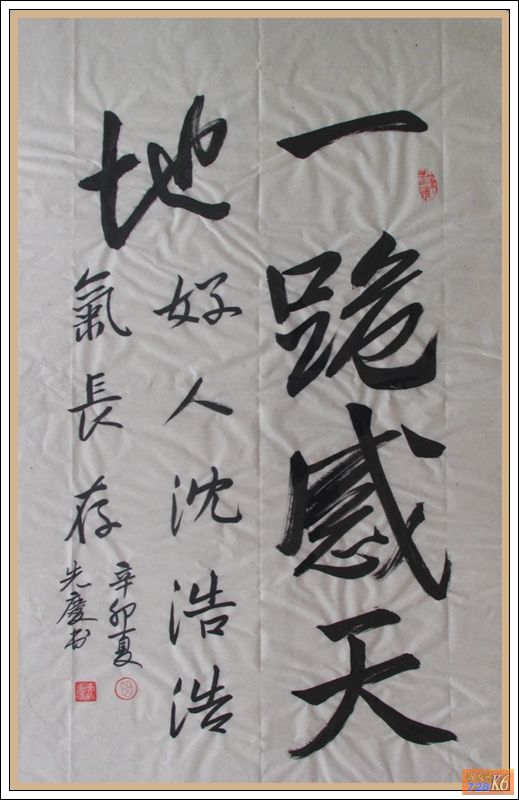 一跪感天
地
好人沈浩浩
氣長存
辛卯夏
先慶书
K6
728